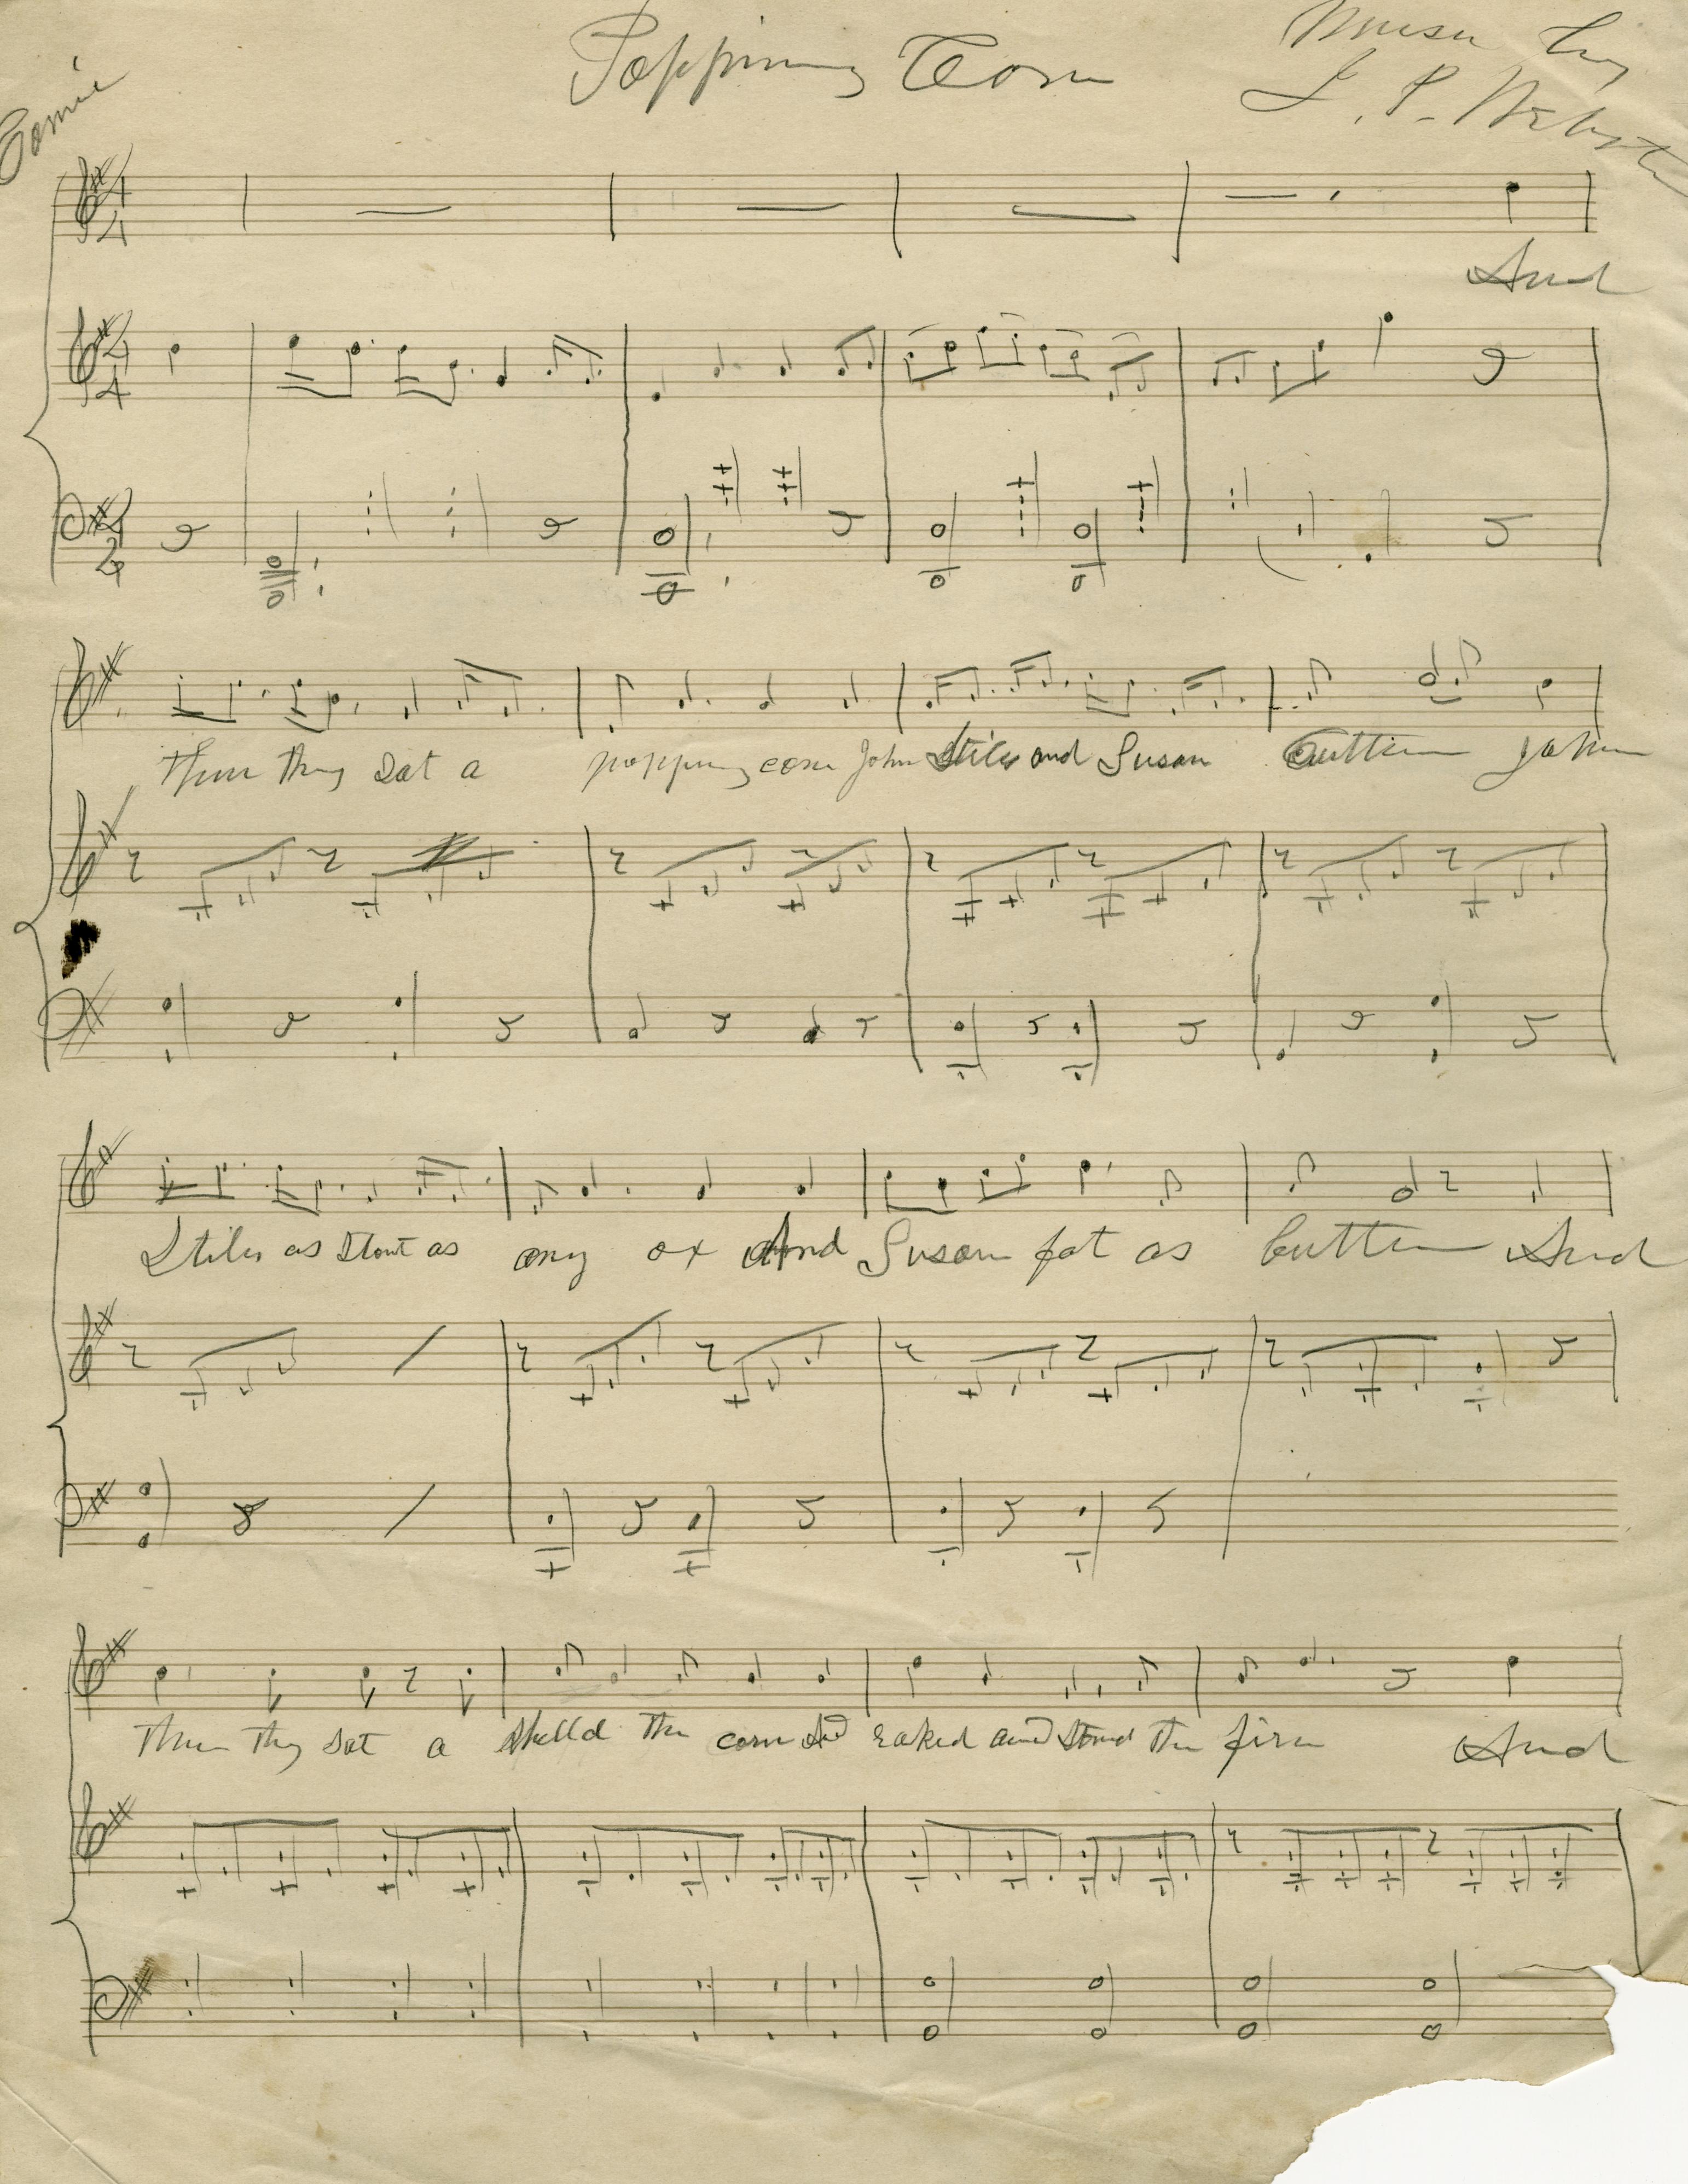 Popping Corn
Comic
Music by
J. P. Webster
4/4
And
4/4
4/4
There they sat a popping corn John Stiles and Susan Cutter John
Stiles as Stout as any ox And Susan fat as butter And
There they sat a shelld the corn And raked and stird the fire And